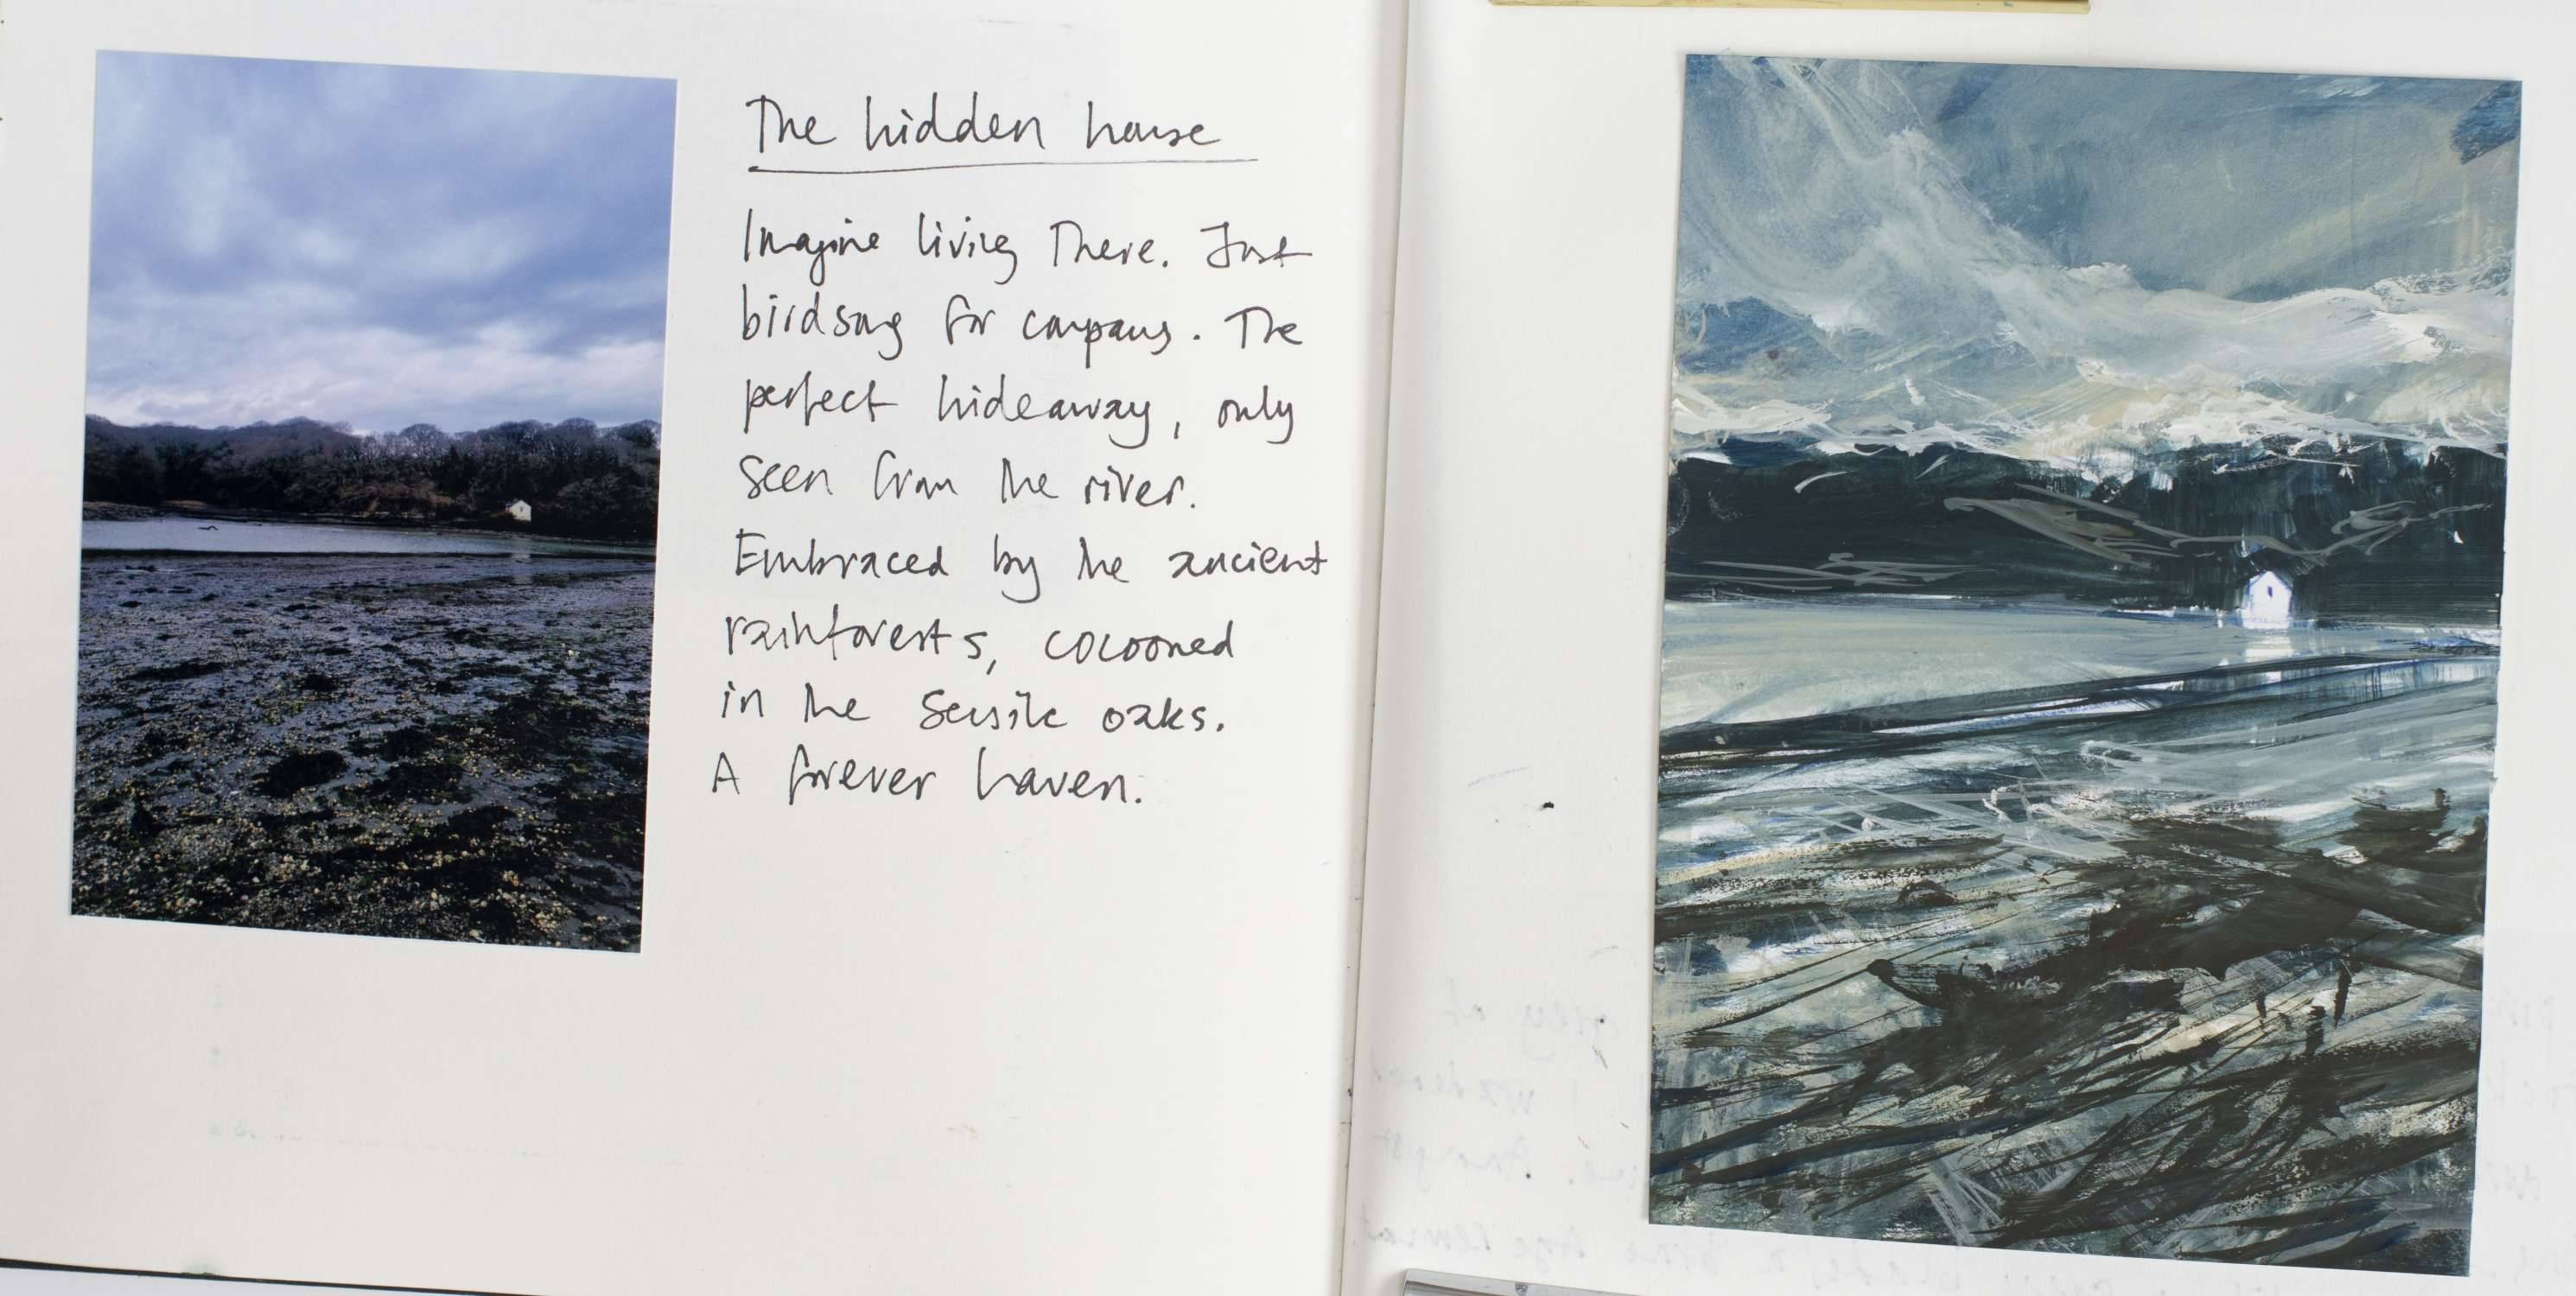 The hidden house
Imagine living there. Just
birdsong for company. The
perfect hideaway, only
seen from the river.
Embraced by the ancient
rainforests, cocooned
in the sessile oaks.
A forever haven.